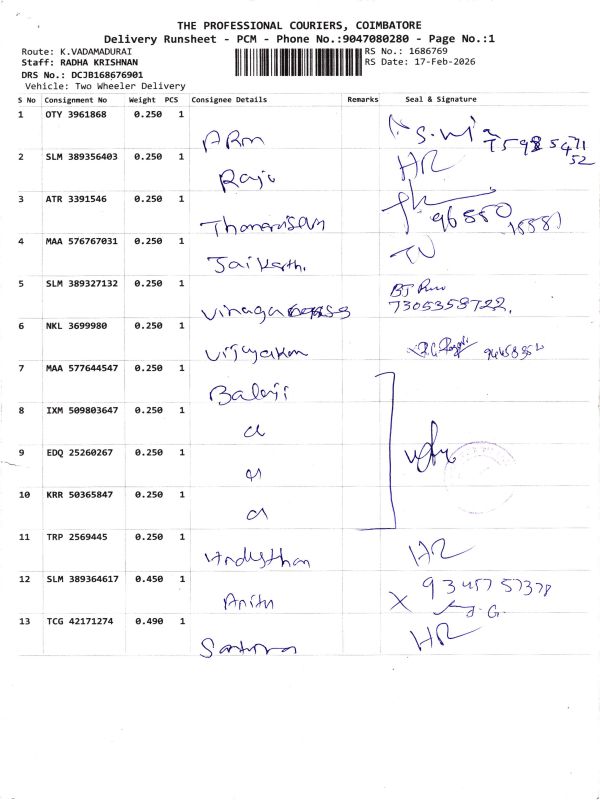 THE PROFESSIONAL COURIERS, COIMBATORE
Delivery Runsheet - PCM - Phone No.:9047080280 - Page No.:1
Route: K.VADAMADURAI RS No.: 1686769
Staff: RADHA KRISHNAN RS Date: 17-Feb-2026
DRS No.: DCJB168676901
Vehicle: Two Wheeler Delivery
S No Consignment No Weight PCS Consignee Details Remarks Seal & Signature
1 OTY 3961868 0.250 1
ARM
2 SLM 389356403 0.250 1 HR
Raju
3 ATR 3391546 0.250 1
4 MAA 576767031 0.250 1
Jai Karthi.
5 SLM 389327132 0.250 1
7305358722.
6 NKL 3699980 0.250 1
Vijayakan
7 MAA 577644547 0.250 1
Balaji
8 IXM 509803647 0.250 1
9 EDQ 25260267 0.250 1
10 KRR 50365847 0.250 1
11 TRP 2569445 0.250 1 HR
12 SLM 389364617 0.450 1
Anitu
13 TCG 42171274 0.490 1 HR